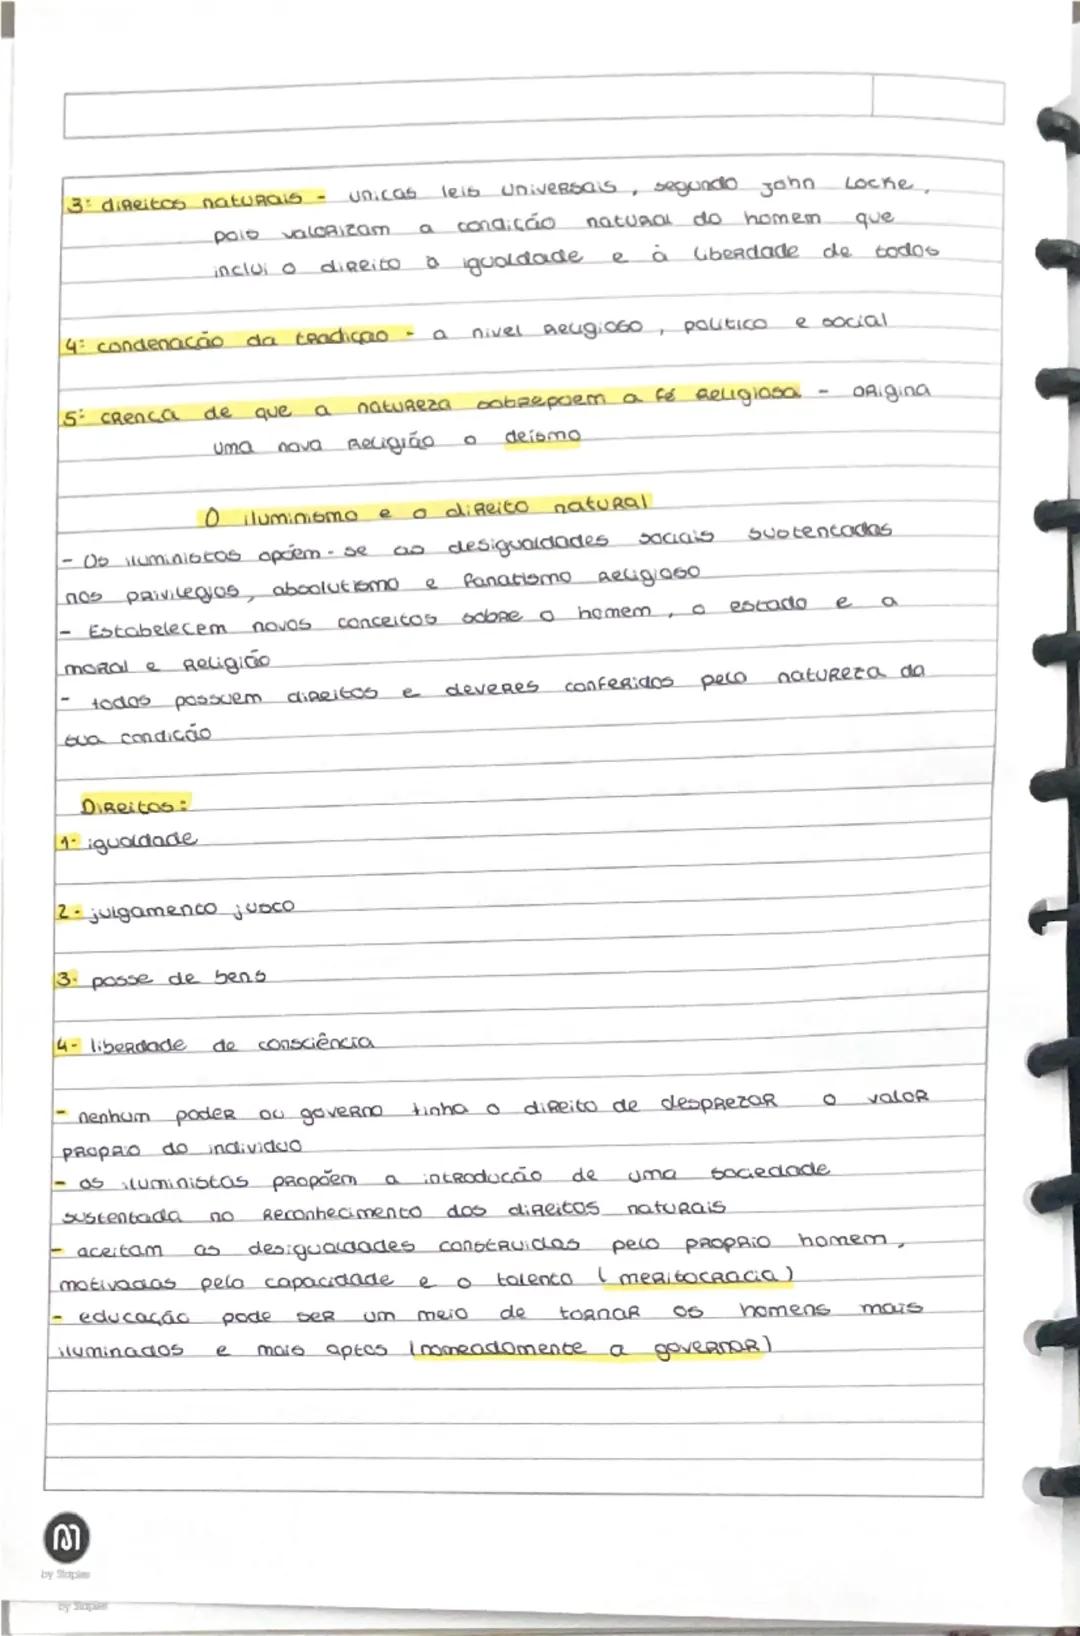 3: direitos naturais - unicas leis universais, segundo john Locke,
pois valorizam a condição natural do homem que
inclui o direito à igualdade e à liberdade de todos
4: condenação da tradiçao - a nivel religioso, politico e social
5: crença de que a natureza sobrepoem a fé religiosa - origina
uma nova religião o deismo
O iluminismo e o direito natural
- Os iluministas opõem-se as desigualdades sociais sustentadas
nos privilegios, absolutismo e fanatismo religioso
- Estabelecem novos conceitos sobre o homem, o estado e a
moral e religião
- todos possuem direitos e deveres conferidos pela natureza da
sua condição
Direitos:
1- igualdade
2- julgamento justo
3- posse de bens
4- liberdade de consciência
- nenhum poder ou governo tinha o direito de desprezar o valor
proprio do individuo
- os iluministas propõem a introdução de uma sociedade
sustentada no reconhecimento dos direitos naturais
- aceitam as desigualdades construidas pelo proprio homem,
motivadas pela capacidade e o talento (meritocracia)
- educação pode ser um meio de tornar os homens mais
iluminados e mais aptos (nomeadamente a governar)
by Staples
by Staples